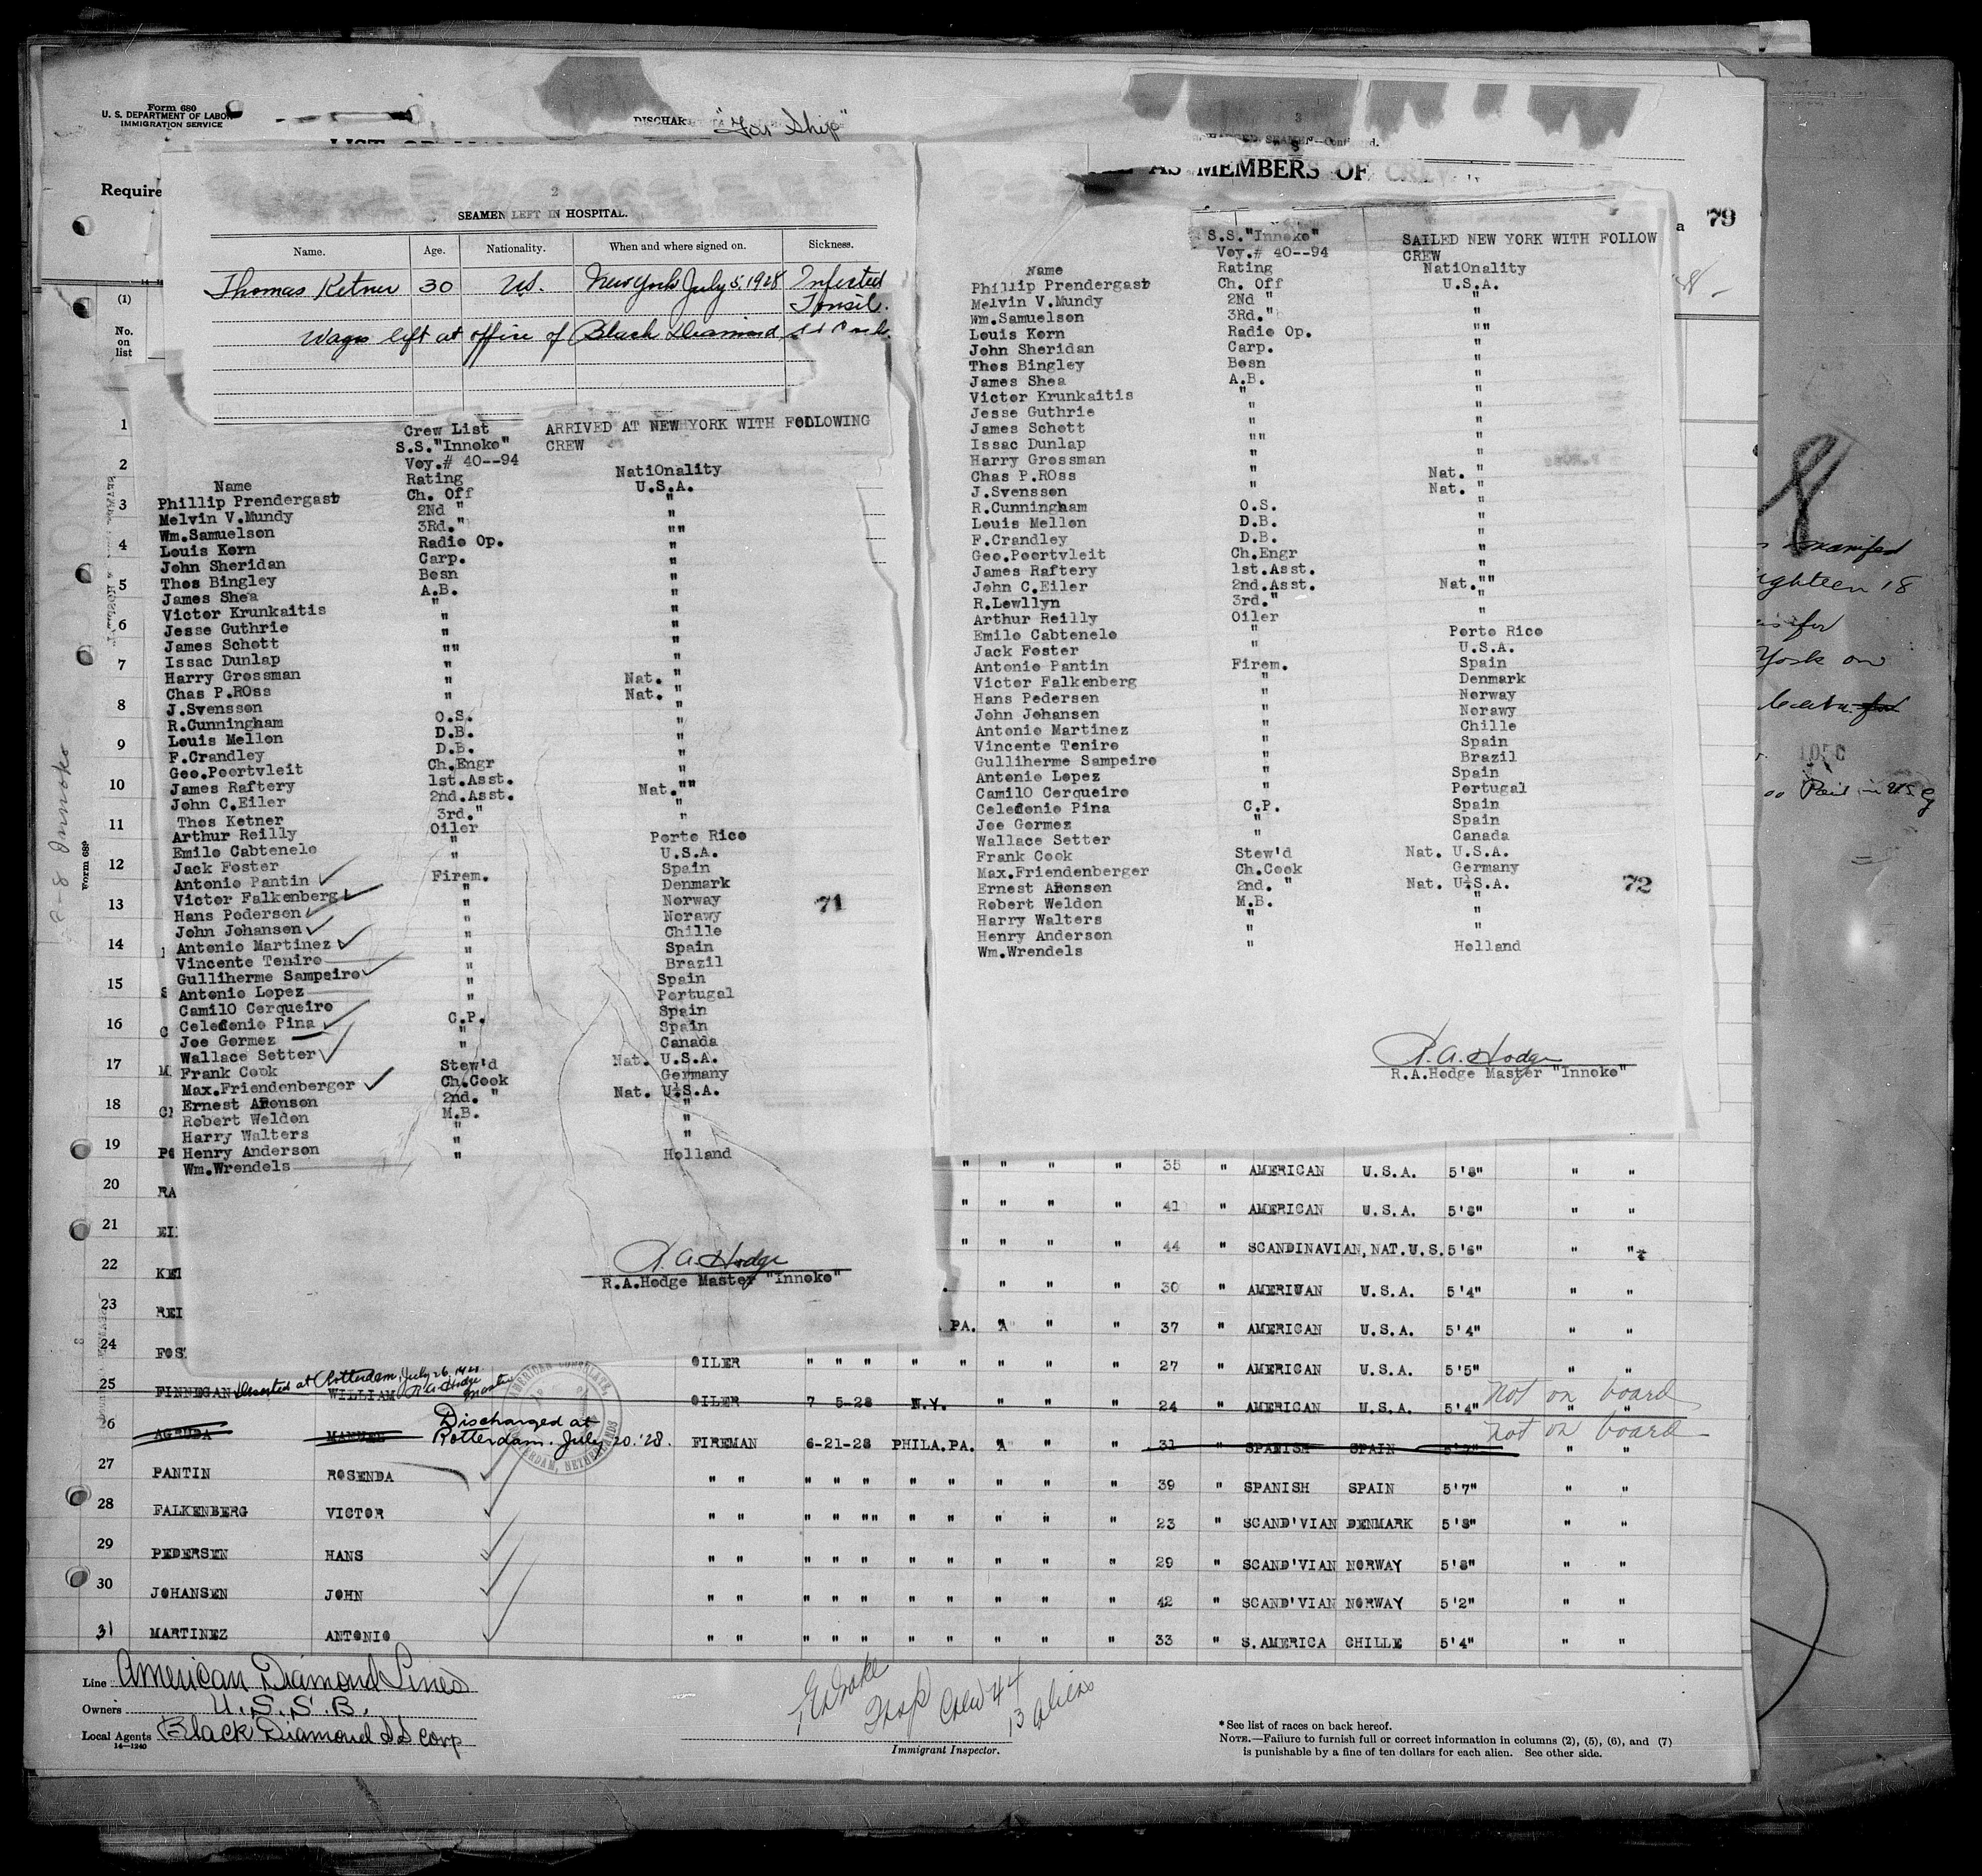 Form 680
U. S. DEPARTMENT OF LABOR
IMMIGRATION SERVICE
"For Ship"
Require
(1)
No.
on
list
2
SEAMEN LEFT IN HOSPITAL.
Name. Age. Nationality. When and where signed on. Sickness.
Thomas Ketner 30 U.S. New York July 5, 1928 Infected Tonsil.
Wages left at office of Black Diamond
Crew List
S.S."Innoko"
Voy.# 40--94
ARRIVED AT NEW YORK WITH FOLLOWING
CREW
Name Rating NatiOnality
Phillip Prendergast Ch. Off U.S.A.
Melvin V.Mundy 2Nd " "
Wm.Samuelson 3Rd." "
Louis Korn Radio Op. ""
John Sheridan Carp. "
Thos Bingley Bosn "
James Shea A.B. "
Victor Krunkaitis " "
Jesse Guthrie " "
James Schott " "
Issac Dunlap "" "
Harry Grossman " "
Chas P.ROss " Nat. "
J.Svensson " Nat. "
R.Cunningham O.S. "
Louis Mellon D.B. "
F.Crandley D.B. "
Geo.Poortvleit Ch.Engr "
James Raftery 1st.Asst. "
John C.Eiler 2nd.Asst. Nat.""
Thos Ketner 3rd." "
Arthur Reilly Oiler "
Emile Cabtenelo " Porto Rico
Jack Foster " U.S.A.
Antonio Pantin Firem. Spain
Victor Falkenberg " Denmark
Hans Pedersen " Norway
John Johansen " Norawy
Antonio Martinez " Chille
Vincente Teniro " Spain
Gulliherme Sampeiro " Brazil
Antonio Lopez " Spain
CamilO Cerqueiro " Portugal
Celedonio Pina C.P. Spain
Joe Gormez " Spain
Wallace Setter " Canada
Frank Cook Stew'd Nat. U.S.A.
Max.Friendenberger Ch.Cook Germany
Ernest Aronson 2nd. " Nat. U.S.A.
Robert Weldon M.B. "
Harry Walters " "
Henry Anderson " "
Wm.Wrendels " Holland
71
R.A.Hodge
R.A.Hodge Master "Innoko"
3
AS MEMBERS OF CREW
79
S.S."Innoko"
Voy.# 40--94
SAILED NEW YORK WITH FOLLOW
CREW
Name Rating NatiOnality
Phillip Prendergast Ch. Off U.S.A.
Melvin V.Mundy 2Nd " "
Wm.Samuelson 3Rd." "
Louis Korn Radio Op. ""
John Sheridan Carp. "
Thos Bingley Bosn "
James Shea A.B. "
Victor Krunkaitis " "
Jesse Guthrie " "
James Schott " "
Issac Dunlap "" "
Harry Grossman " "
Chas P.ROss " Nat. "
J.Svensson " Nat. "
R.Cunningham O.S. "
Louis Mellon D.B. "
F.Crandley D.B. "
Geo.Poortvleit Ch.Engr "
James Raftery 1st.Asst. "
John C.Eiler 2nd.Asst. Nat.""
R.Lewllyn 3rd." "
Arthur Reilly Oiler "
Emile Cabtenelo " Porto Rico
Jack Foster " U.S.A.
Antonio Pantin Firem. Spain
Victor Falkenberg " Denmark
Hans Pedersen " Norway
John Johansen " Norawy
Antonio Martinez " Chille
Vincente Teniro " Spain
Gulliherme Sampeiro " Brazil
Antonio Lopez " Spain
CamilO Cerqueiro " Portugal
Celedonio Pina C.P. Spain
Joe Gormez " Spain
Wallace Setter " Canada
Frank Cook Stew'd Nat. U.S.A.
Max.Friendenberger Ch.Cook Germany
Ernest Aronson 2nd. " Nat. U.S.A.
Robert Weldon M.B. "
Harry Walters " "
Henry Anderson " "
Wm.Wrendels " Holland
72
R.A.Hodge
R.A.Hodge Master "Innoko"
1
2
3
4
5
6
7
8
9
10
11
12
13
14
15
16
17
18
19
" " " " 35 " AMERICAN U.S.A. 5'8" " "
20 RA " " " " 41 " AMERICAN U.S.A. 5'8" " "
21 EI " " " " 44 " SCANDINAVIAN, NAT.U.S. 5'6" " "
22 KET " " " 30 " AMERIUAN U.S.A. 5'4" " "
23 REI PA. A " " 37 " AMERICAN U.S.A. 5'4" " "
24 FOS OILER " " " " " " " " 27 " AMERICAN U.S.A. 5'5" " "
25 FINNEGAN WILLIAM Deserted at Rotterdam, July 26, 1928 R.A. Hodge Master OILER 7 5-28 N.Y. " " " 24 " AMERICAN U.S.A. 5'4" " " not on board
26 AGRUDA MANUEL Discharged at Rotterdam. July 20. '28. FIREMAN 6-21-28 PHILA.PA. A " " 31 " SPANISH SPAIN " " not on board
27 PANTIN ROSENDA " " " " " " " " " " 39 " SPANISH SPAIN 5'7" " "
28 FALKENBERG VICTOR " " " " "" " " " " " 23 " SCAND'VIAN DENMARK 5'8" " "
29 PEDERSEN HANS " " " " " " " " " " 29 " SCAND'VIAN NORWAY 5'8" " "
30 JOHANSEN JOHN " " " " " " " " " " 42 " SCAND'VIAN NORWAY 5'2" " "
31 MARTINEZ ANTONIO " " " " " " " " " " 33 " S.AMERICA CHILLE 5'4" " "
Line American Diamond Lines
Owners U.S.S.B.
Local Agents Black Diamond SS Corp
14—1240
Crew 44
13 aliens
Immigrant Inspector.
* See list of races on back hereof.
NOTE.—Failure to furnish full or correct information in columns (2), (5), (6), and (7)
is punishable by a fine of ten dollars for each alien. See other side.
Form 689
Innoko
8
manifest
eighteen 18
York on
Paid in U.S.